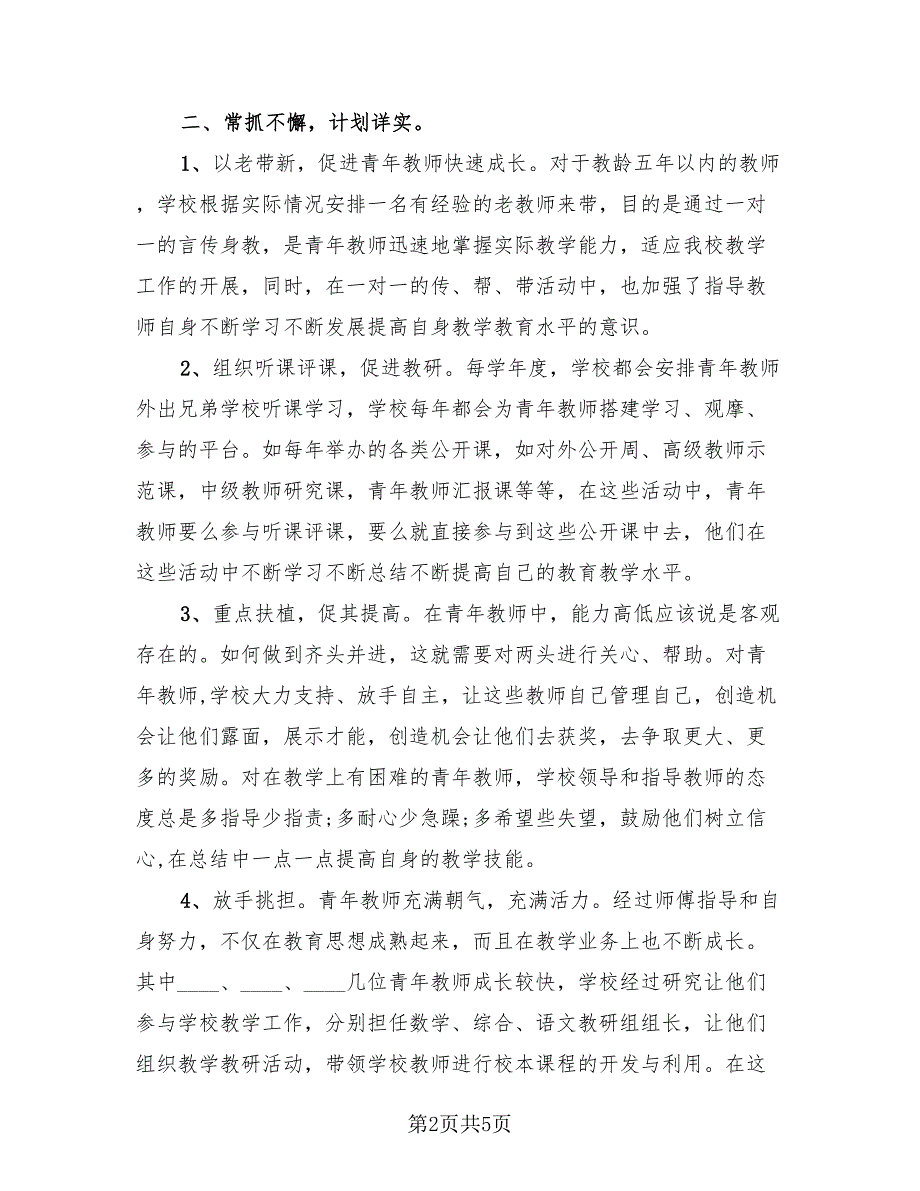 二、常抓不懈，计划详实。
1、以老带新，促进青年教师快速成长。对于教龄五年以内的教师
，学校根据实际情况安排一名有经验的老教师来带，目的是通过一对
一的言传身教，是青年教师迅速地掌握实际教学能力，适应我校教学
工作的开展，同时，在一对一的传、帮、带活动中，也加强了指导教
师自身不断学习不断发展提高自身教学教育水平的意识。
2、组织听课评课，促进教研。每学年度，学校都会安排青年教师
外出兄弟学校听课学习，学校每年都会为青年教师搭建学习、观摩、
参与的平台。如每年举办的各类公开课，如对外公开周、高级教师示
范课，中级教师研究课，青年教师汇报课等等，在这些活动中，青年
教师要么参与听课评课，要么就直接参与到这些公开课中去，他们在
这些活动中不断学习不断总结不断提高自己的教育教学水平。
3、重点扶植，促其提高。在青年教师中，能力高低应该说是客观
存在的。如何做到齐头并进，这就需要对两头进行关心、帮助。对青
年教师,学校大力支持、放手自主，让这些教师自己管理自己，创造机
会让他们露面，展示才能，创造机会让他们去获奖，去争取更大、更
多的奖励。对在教学上有困难的青年教师，学校领导和指导教师的态
度总是多指导少指责;多耐心少急躁;多希望些失望，鼓励他们树立信
心,在总结中一点一点提高自身的教学技能。
4、放手挑担。青年教师充满朝气，充满活力。经过师傅指导和自
身努力，不仅在教育思想成熟起来，而且在教学业务上也不断成长。
其中____、____、____几位青年教师成长较快，学校经过研究让他们
参与学校教学工作，分别担任数学、综合、语文教研组组长，让他们
组织教学教研活动，带领学校教师进行校本课程的开发与利用。在这
第2页共5页